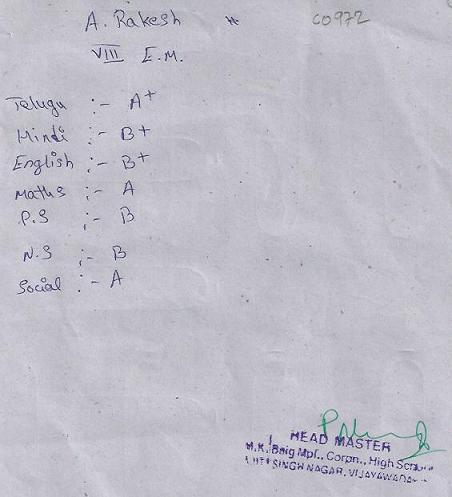 A. Rakesh C0972
VIII E.M.
Telugu :- A+
Hindi :- B+
English :- B+
Maths :- A
P.S :- B
N.S :- B
Social :- A
HEAD MASTER
M.K. Baig Mpl., Corpn., High
SINGH NAGAR, VIJAYAWADA